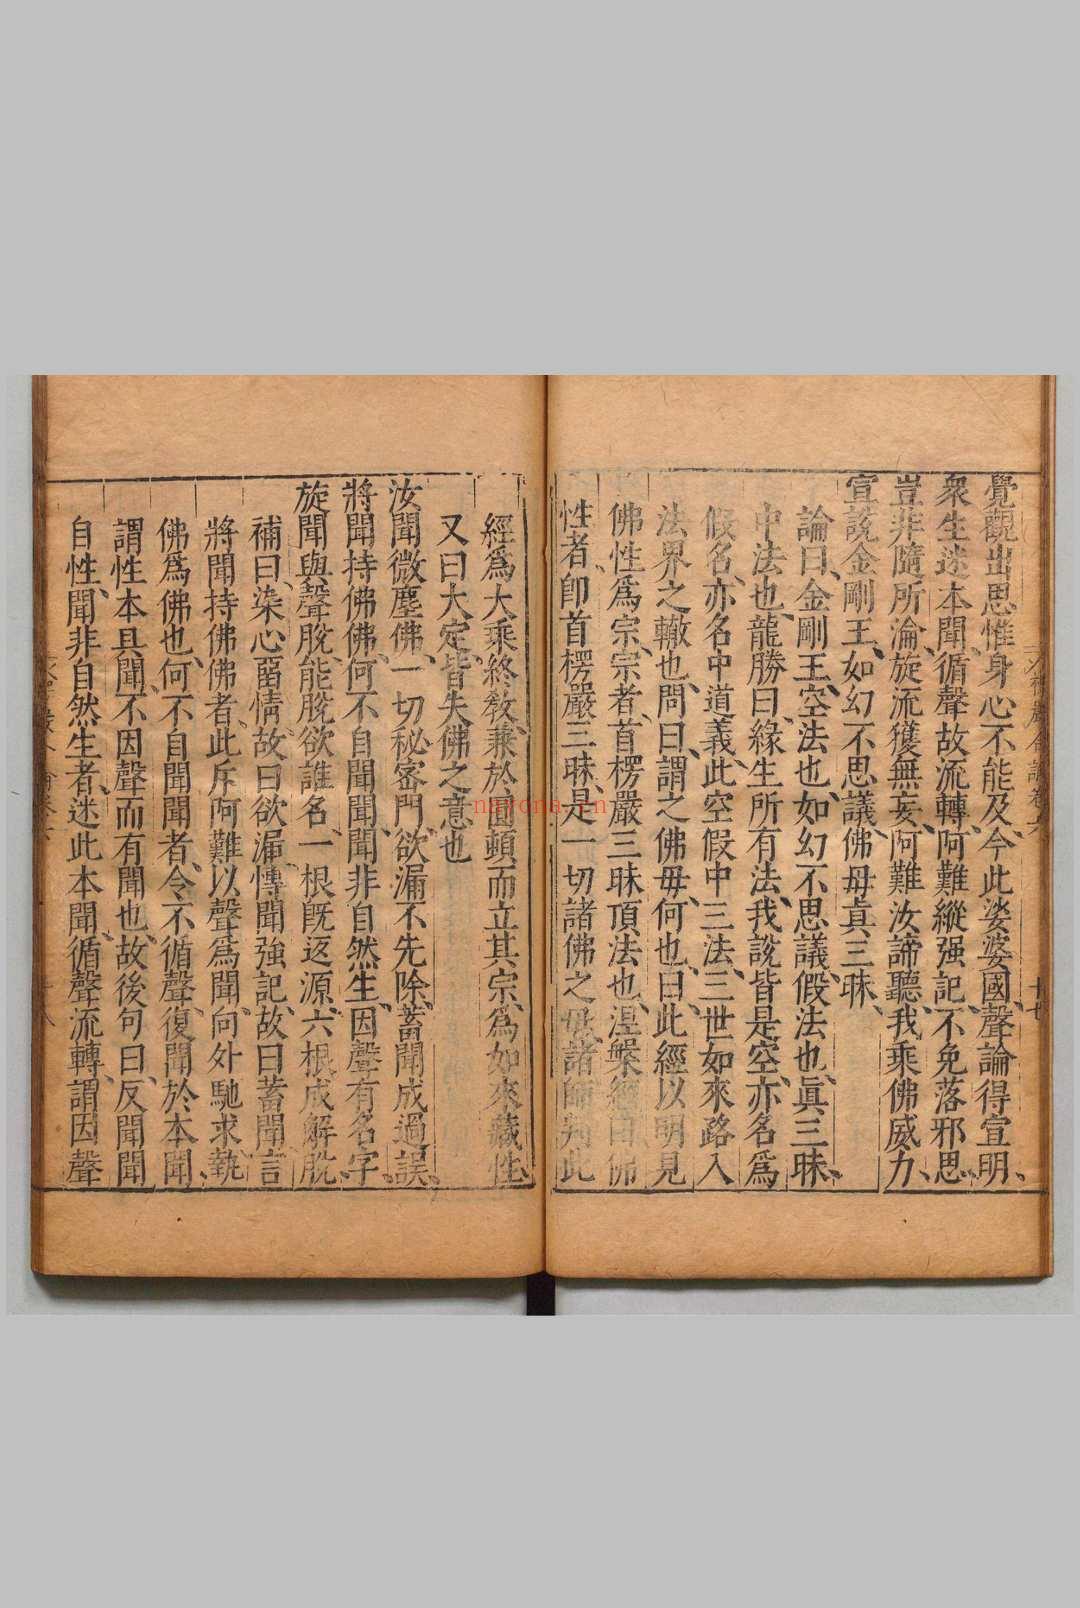 覺觀出思惟身心不能及今此娑婆國聲論得宣明
衆生迷本聞循聲故流轉阿難縱强記不免落邪思
豈非隨所淪旋流獲無妄阿難汝諦聽我乘佛威力
宣說金剛王如幻不思議佛母眞三昧
論曰金剛王空法也如幻不思議假法也眞三昧
中法也龍勝曰緣生所有法我說皆是空亦名爲
假名亦名中道義此空假中三法三世如來路入
法界之轍也問曰謂之佛母何也曰此經以明見
佛性爲宗宗者首楞嚴三昧頂法也涅槃經曰佛
性者卽首楞嚴三昧是一切諸佛之母諸師判此
經爲大乘終敎兼於圓頓而立其宗爲如來藏性
又曰大定皆失佛之意也
汝聞微塵佛一切秘密門欲漏不先除蓄聞成過誤
將聞持佛佛何不自聞聞聞非自然生因聲有名字
旋聞與聲脫能脫欲誰名一根旣返源六根成解脫
補曰染心畱情故曰欲漏慱聞強記故曰蓄聞言
將聞持佛佛者此斥阿難以聲爲聞向外馳求孰
佛爲佛也何不自聞聞者令不循聲復聞於本聞
謂性本具聞不因聲而有聞也故後句曰反聞聞
自性聞非自然生者迷此本聞循聲流轉謂因聲
nayona.cn